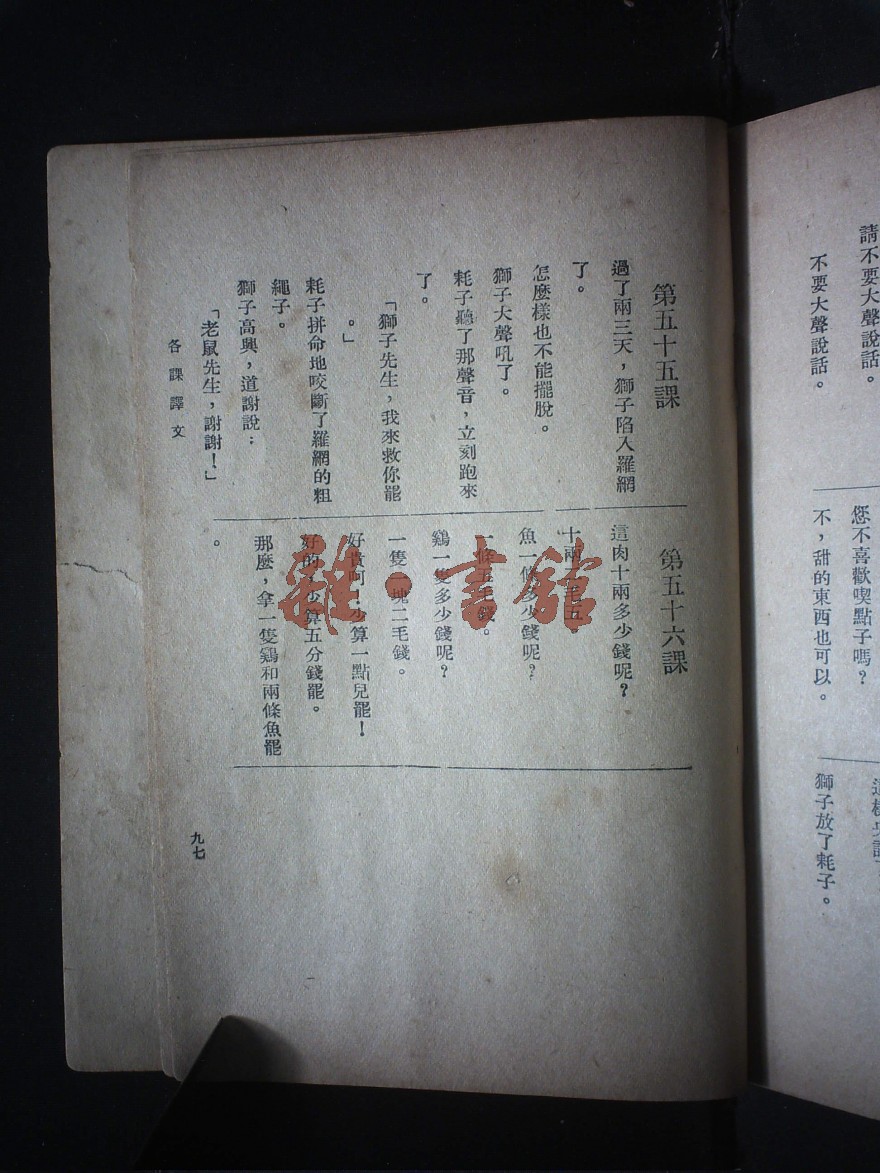 請不要大聲說話。
不要大聲說話。
您不喜歡喫點子嗎?
不,甜的東西也可以。
獅子放了耗子。
第五十五課
過了兩三天,獅子陷入羅網
了。
怎麼樣也不能擺脫。
獅子大聲吼了。
耗子聽了那聲音,立刻跑來
了。
「獅子先生,我來救你罷
。」
耗子拼命地咬斷了羅網的粗
繩子。
獅子高興,道謝說:
「老鼠先生,謝謝!」
第五十六課
這肉十兩多少錢呢?
十兩一毛五。
魚一條多少錢呢?
一條五毛錢。
鷄一隻多少錢呢?
一隻一塊二毛錢。
好貴呵!少算一點兒罷!
好的,少算五分錢罷。
那麼,拿一隻鷄和兩條魚罷
。
各課譯文
九七
雜·書館